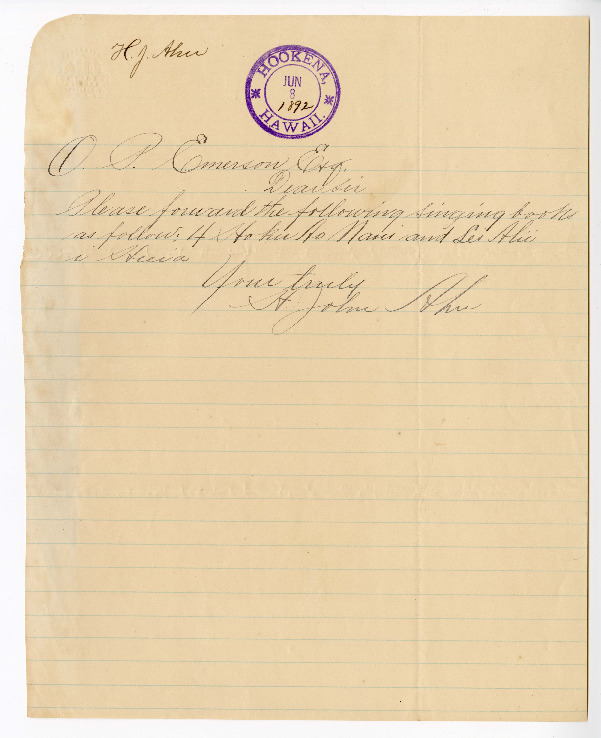 H. J. Ahu
HOOKENA,
JUN
8
1892
HAWAII.
O. P. Emerson Esq.
Dear sir
Please forward the following singing books
as follow; 4 Hoku Ao Nani and Lei Alii
i
Your truly
H. John Ahu